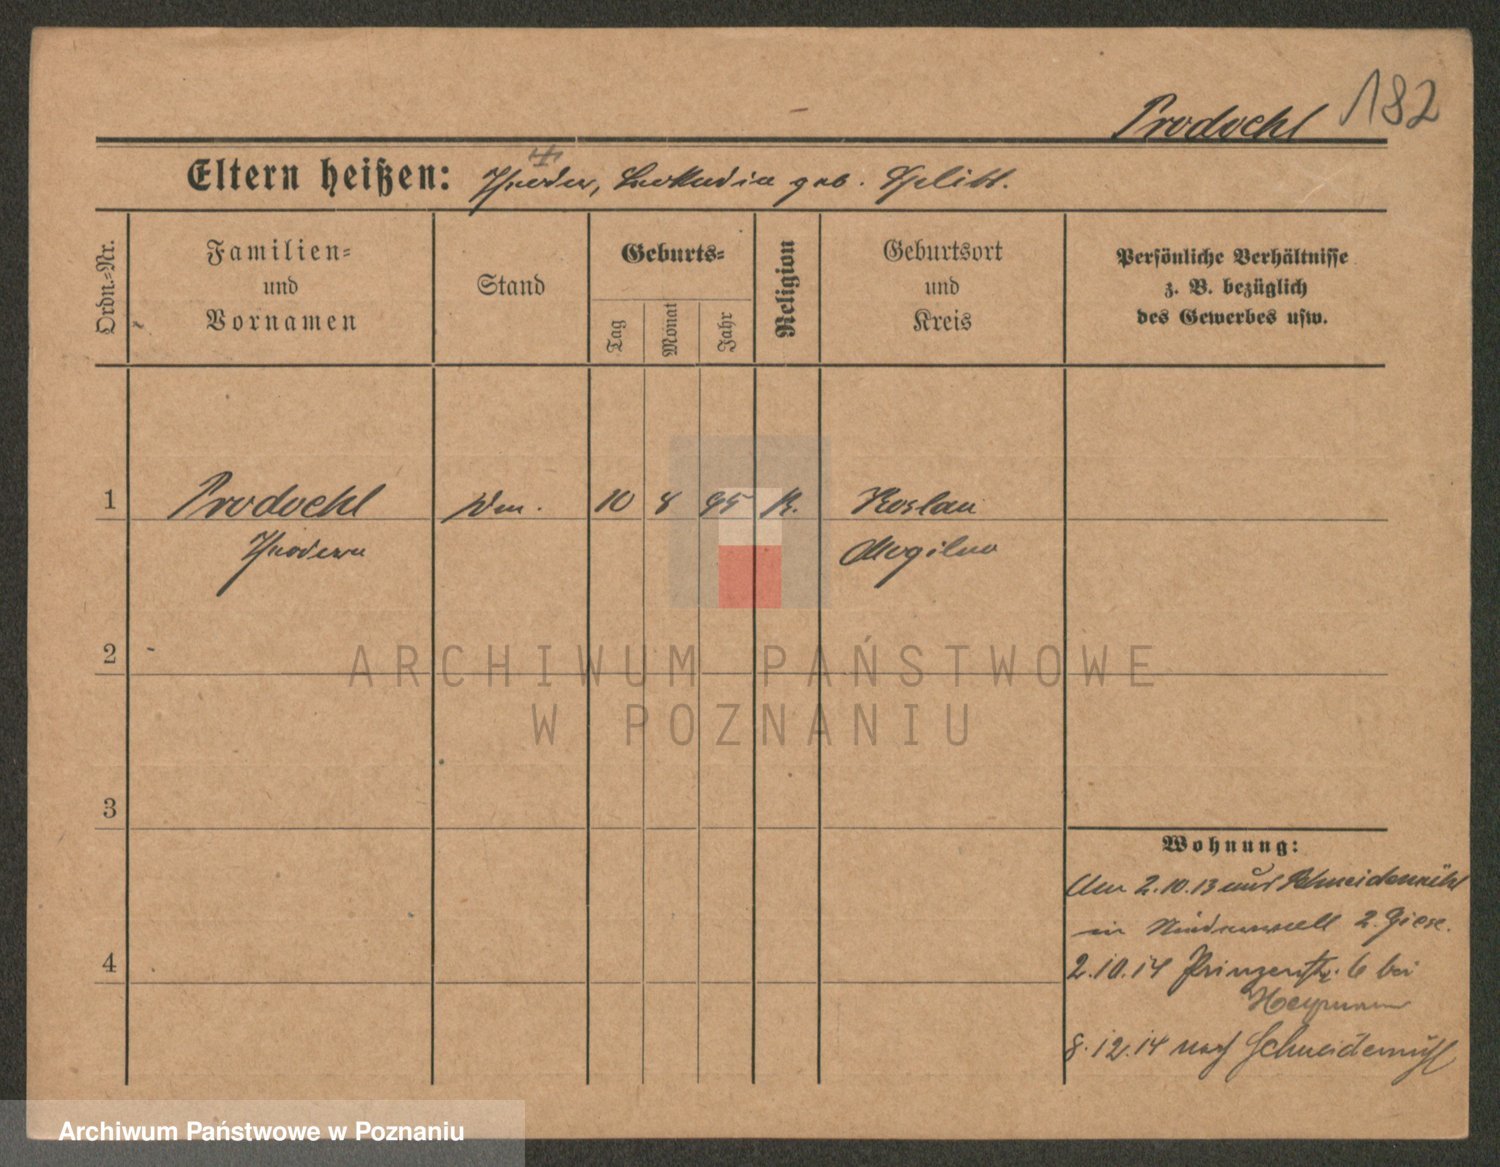 182
Prodoehl
Eltern heißen: Theodor, Leokadia geb. Splitt.
Ordn.-Nr.
Familien-
und
Vornamen
Stand
Geburts-
Tag
Monat
Jahr
Religion
Geburtsort
und
Kreis
Persönliche Verhältnisse
z. B. bezüglich
des Gewerbes usw.
1 Prodoehl 10 8 95 K. Koslau
Theodora Mogilno
2
3
4
Wohnung:
Am 2.10.13 aus Schneidemühl
in 2. Giese.
2.10.14 Prinzenstr. 6 bei
Heymann
8.12.14 nach Schneidemühl
ARCHIWUM PAŃSTWOWE
W POZNANIU
Archiwum Państwowe w Poznaniu